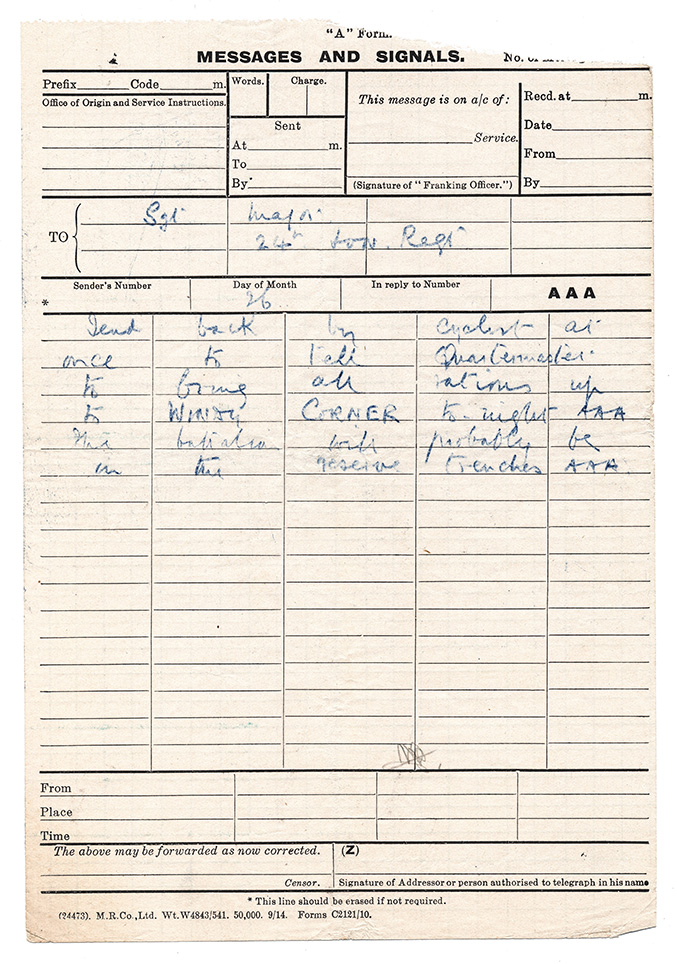 "A" Form.
MESSAGES AND SIGNALS.
Prefix Code m.
Words. Charge.
This message is on a/c of:
Recd. at m.
Office of Origin and Service Instructions.
Sent
Date
At m.
Service.
To
From
By
(Signature of "Franking Officer.")
By
TO
Sgt Major
24th Lon. Regt
Sender's Number Day of Month In reply to Number
* 26 AAA
Send back by cyclist at
once to tell Quartermaster
to bring all rations up
to WINDY CORNER to-night AAA
This battalion will probably be
in the reserve trenches AAA
From
Place
Time
The above may be forwarded as now corrected. (Z)
Censor. Signature of Addressor or person authorised to telegraph in his name
* This line should be erased if not required.
(24473). M.R.Co.,Ltd. Wt.W4843/541. 50,000. 9/14. Forms C2121/10.